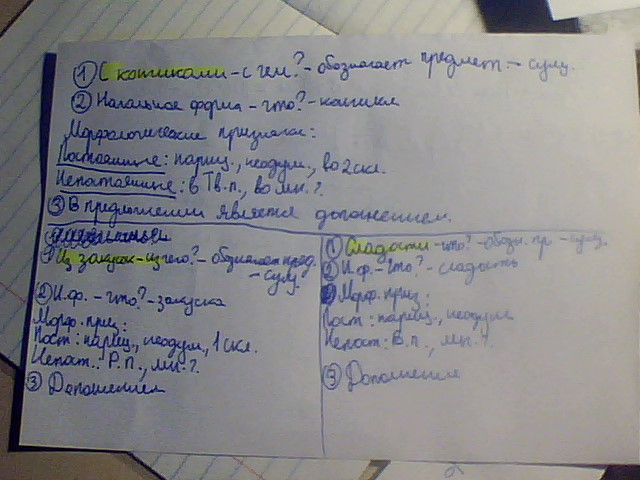 ① С котиками - с чем? - обозначает предмет - сущ.
② Начальная форма - что? - котики
Морфологические признаки:
Постоянные: нариц., неодуш., во 2 скл.
Непостоянные: в Тв.п., во мн.ч.
③ В предложении является дополнением.
Из закусок - из чего? - обозначает пред.
- сущ.
② Н.ф. - что? - закуска
Морф. приз:
Пост: нариц., неодуш., 1 скл.
Непост.: Р.П., мн.ч.
③ Дополнение
① Сладости - что? - обозн. пр - сущ.
② Н.ф. - что? - сладость
Морф. приз:
Пост: нариц., неодуш
Непост: В.п., мн.ч.
③ Дополнение